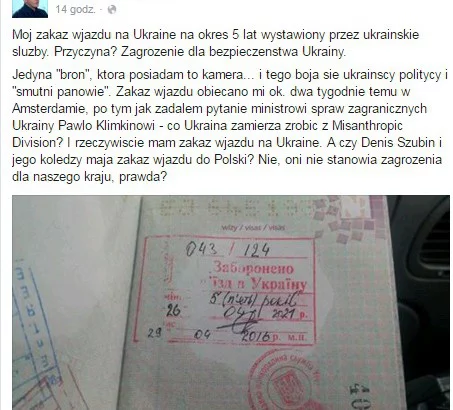 14 godz. ·
Moj zakaz wjazdu na Ukraine na okres 5 lat wystawiony przez ukrainskie
sluzby. Przyczyna? Zagrozenie dla bezpieczenstwa Ukrainy.
Jedyna "bron", ktora posiadam to kamera... i tego boja sie ukrainscy politycy i
"smutni panowie". Zakaz wjazdu obiecano mi ok. dwa tygodnie temu w
Amsterdamie, po tym jak zadalem pytanie ministrowi spraw zagranicznych
Ukrainy Pawlo Klimkinowi - co Ukraina zamierza zrobic z Misanthropic
Division? I rzeczywiscie mam zakaz wjazdu na Ukraine. A czy Denis Szubin i
jego koledzy maja zakaz wjazdu do Polski? Nie, oni nie stanowia zagrozenia
dla naszego kraju, prawda?
wizy / visas / visas
043 / 124
Заборонено
в'їзд в Україну
5 (п'ять) років
26 04 2021 р.
29 04 2016 р.